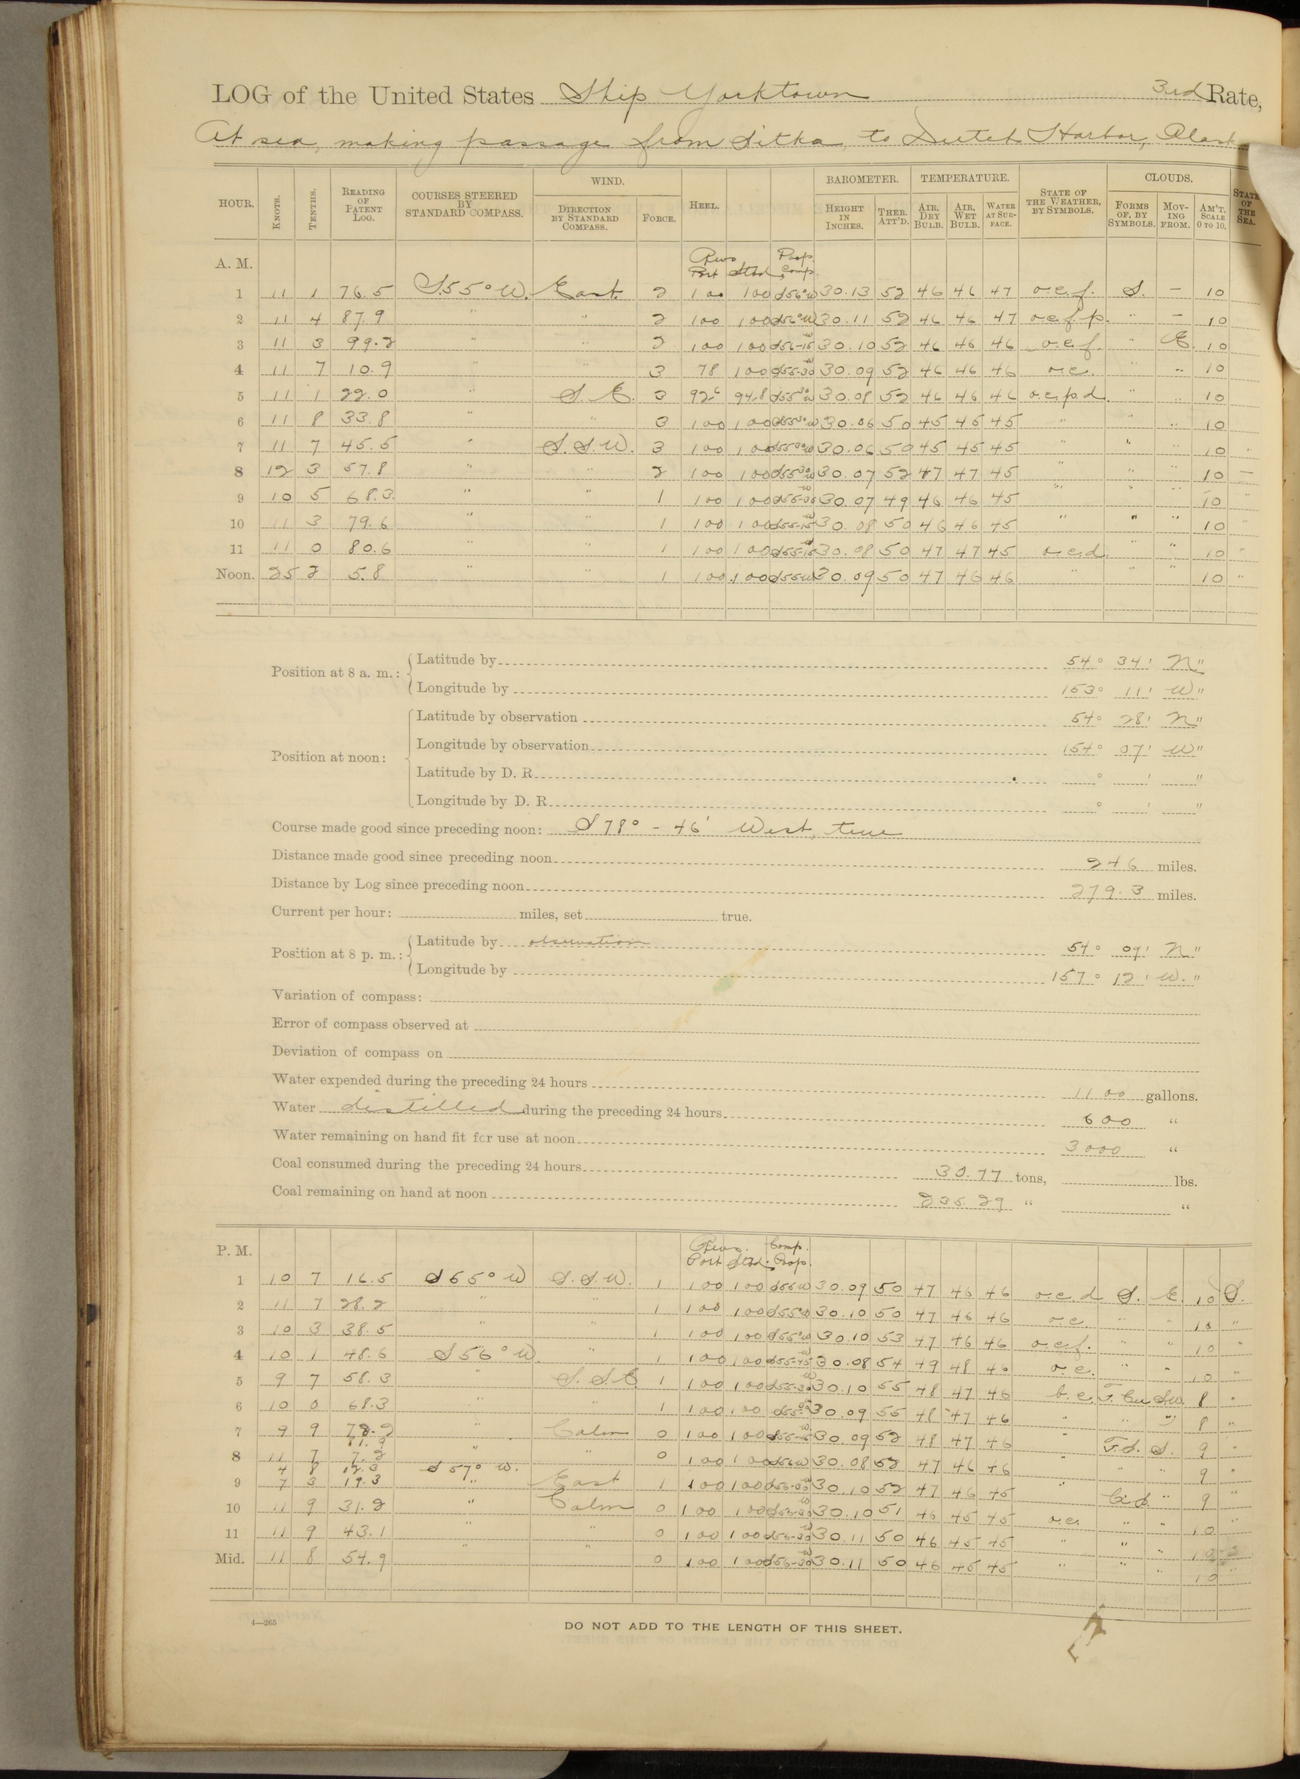 LOG of the United States Ship Yorktown 3rd Rate,
At sea, making passage from Sitka, to Dutch Harbor, Alask
HOUR. KNOTS. TENTHS. READING OF PATENT LOG. COURSES STEERED BY STANDARD COMPASS. WIND. DIRECTION BY STANDARD COMPASS. FORCE. HEEL. BAROMETER. HEIGHT IN INCHES. THER. ATT'D. TEMPERATURE. AIR, DRY BULB. AIR, WET BULB. WATER AT SURFACE. STATE OF THE WEATHER, BY SYMBOLS. CLOUDS. FORMS OF, BY SYMBOLS. MOVING FROM. AM'T. SCALE 0 TO 10. STATE OF THE SEA.
A. M. Revs Port Stbd Prop. Comp.
1 11 1 76.5 S55°W. East 2 100 100 30.13 52 46 46 47 o.c.f. S. — 10
2 11 4 87.9 " " 2 100 100 30.11 52 46 46 47 o.c.f.p. " — 10
3 11 3 99.2 " " 2 100 100 30.10 52 46 46 46 o.c.f. " E. 10
4 11 7 10.9 " " 3 78 100 30.09 52 46 46 46 o.c. " " 10
5 11 1 22.0 " S.E. 3 94.8 30.08 52 46 46 46 o.c.p.d. " " 10
6 11 8 33.8 " " 3 100 100 30.06 50 45 45 45 " " " 10
7 11 7 45.5 " S.S.W. 3 100 100 30.06 50 45 45 45 " " " 10
8 12 3 57.8 " " 2 100 100 30.07 52 47 47 45 " " " 10 —
9 10 5 68.3 " " 1 100 100 30.07 49 46 46 45 " " " 10
10 11 3 79.6 " " 1 100 100 30.08 50 46 46 45 " " " 10
11 11 0 80.6 " " 1 100 100 30.08 50 47 47 45 o.c.d. " " 10
Noon. 25 2 5.8 " " 1 100 100 30.09 50 47 46 46 " " " 10 "
Position at 8 a. m.: Latitude by 54° 34' N "
Longitude by 153° 11' W "
Position at noon: Latitude by observation 54° 28' N "
Longitude by observation 154° 07' W "
Latitude by D. R. ° ' "
Longitude by D. R. ° ' "
Course made good since preceding noon: S 78° - 46' West, true
Distance made good since preceding noon 246 miles.
Distance by Log since preceding noon 279.3 miles.
Current per hour: miles, set true.
Position at 8 p. m.: Latitude by observation 54° 09' N "
Longitude by 157° 12' W. "
Variation of compass:
Error of compass observed at
Deviation of compass on
Water expended during the preceding 24 hours 1100 gallons.
Water distilled during the preceding 24 hours 600 "
Water remaining on hand fit for use at noon 3000 "
Coal consumed during the preceding 24 hours 30.77 tons, lbs.
Coal remaining on hand at noon 235.29 " "
P. M. Revs. Port Stbd. Comp. Prop.
1 10 7 16.5 S55°W S.S.W. 1 100 100 30.09 50 47 46 46 o.c.d. S. E. 10 S.
2 11 7 28.2 " " 1 100 100 30.10 50 47 46 46 o.c. " " 10 "
3 10 3 38.5 " " 1 100 100 30.10 53 47 46 46 o.c.f. " " 10 "
4 10 1 48.6 S56°W " 1 100 100 30.08 54 49 48 o.c. " " 10 "
5 9 7 58.3 " S.S.E 1 100 100 30.10 55 48 47 46 b.c. 8 "
6 10 0 68.3 " " 1 100 100 30.09 55 48 47 46 " " " 8 "
7 9 9 78.2 " Calm 0 100 100 30.09 52 48 47 46 " S. 9 "
8 11 7 " " 0 100 100 30.08 52 47 46 46 " " " 9 "
9 7 3 19.3 S57°W. East 1 100 100 30.10 52 47 46 45 " " 9 "
10 11 9 31.2 " Calm 0 100 100 30.10 51 46 45 45 o.c. " " 10
11 11 9 43.1 " " 0 100 100 30.11 50 46 45 45 " " " 10
Mid. 11 8 54.9 " " 0 100 100 30.11 50 46 45 45 " " " 10
4—265
DO NOT ADD TO THE LENGTH OF THIS SHEET.